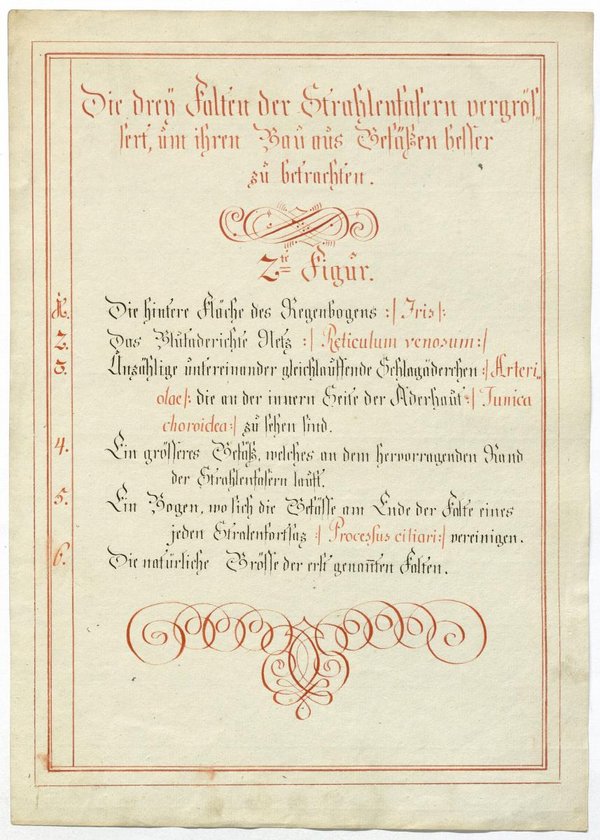 Die dreÿ Falten der Strahlenfasern vergrös„
sert, um ihren Bau aus Gefäßen besser
zu betrachten.
2te Figur.
1. Die hintere Fläche des Regenbogens :/ Iris /:
2. Das Blutaderichte Netz :/ Reticulum venosum:/
3. Unzählige untereinander gleichlauffende Schlagäderchen :/ Arteri„
olae/: die an der innern Seite der Aderhaut :/ Tunica
choroidea:/ zu sehen sind.
4. Ein grösseres Gefäß, welches an dem hervorragenden Rand
der Strahlenfasern lauft.
5. Ein Bogen, wo sich die Gefässe am Ende der Falte eines
jeden Stralenfortsaz :/ Processus ciliari:/ vereinigen.
6. Die natürliche Grösse der erst genan̅ten Falten.